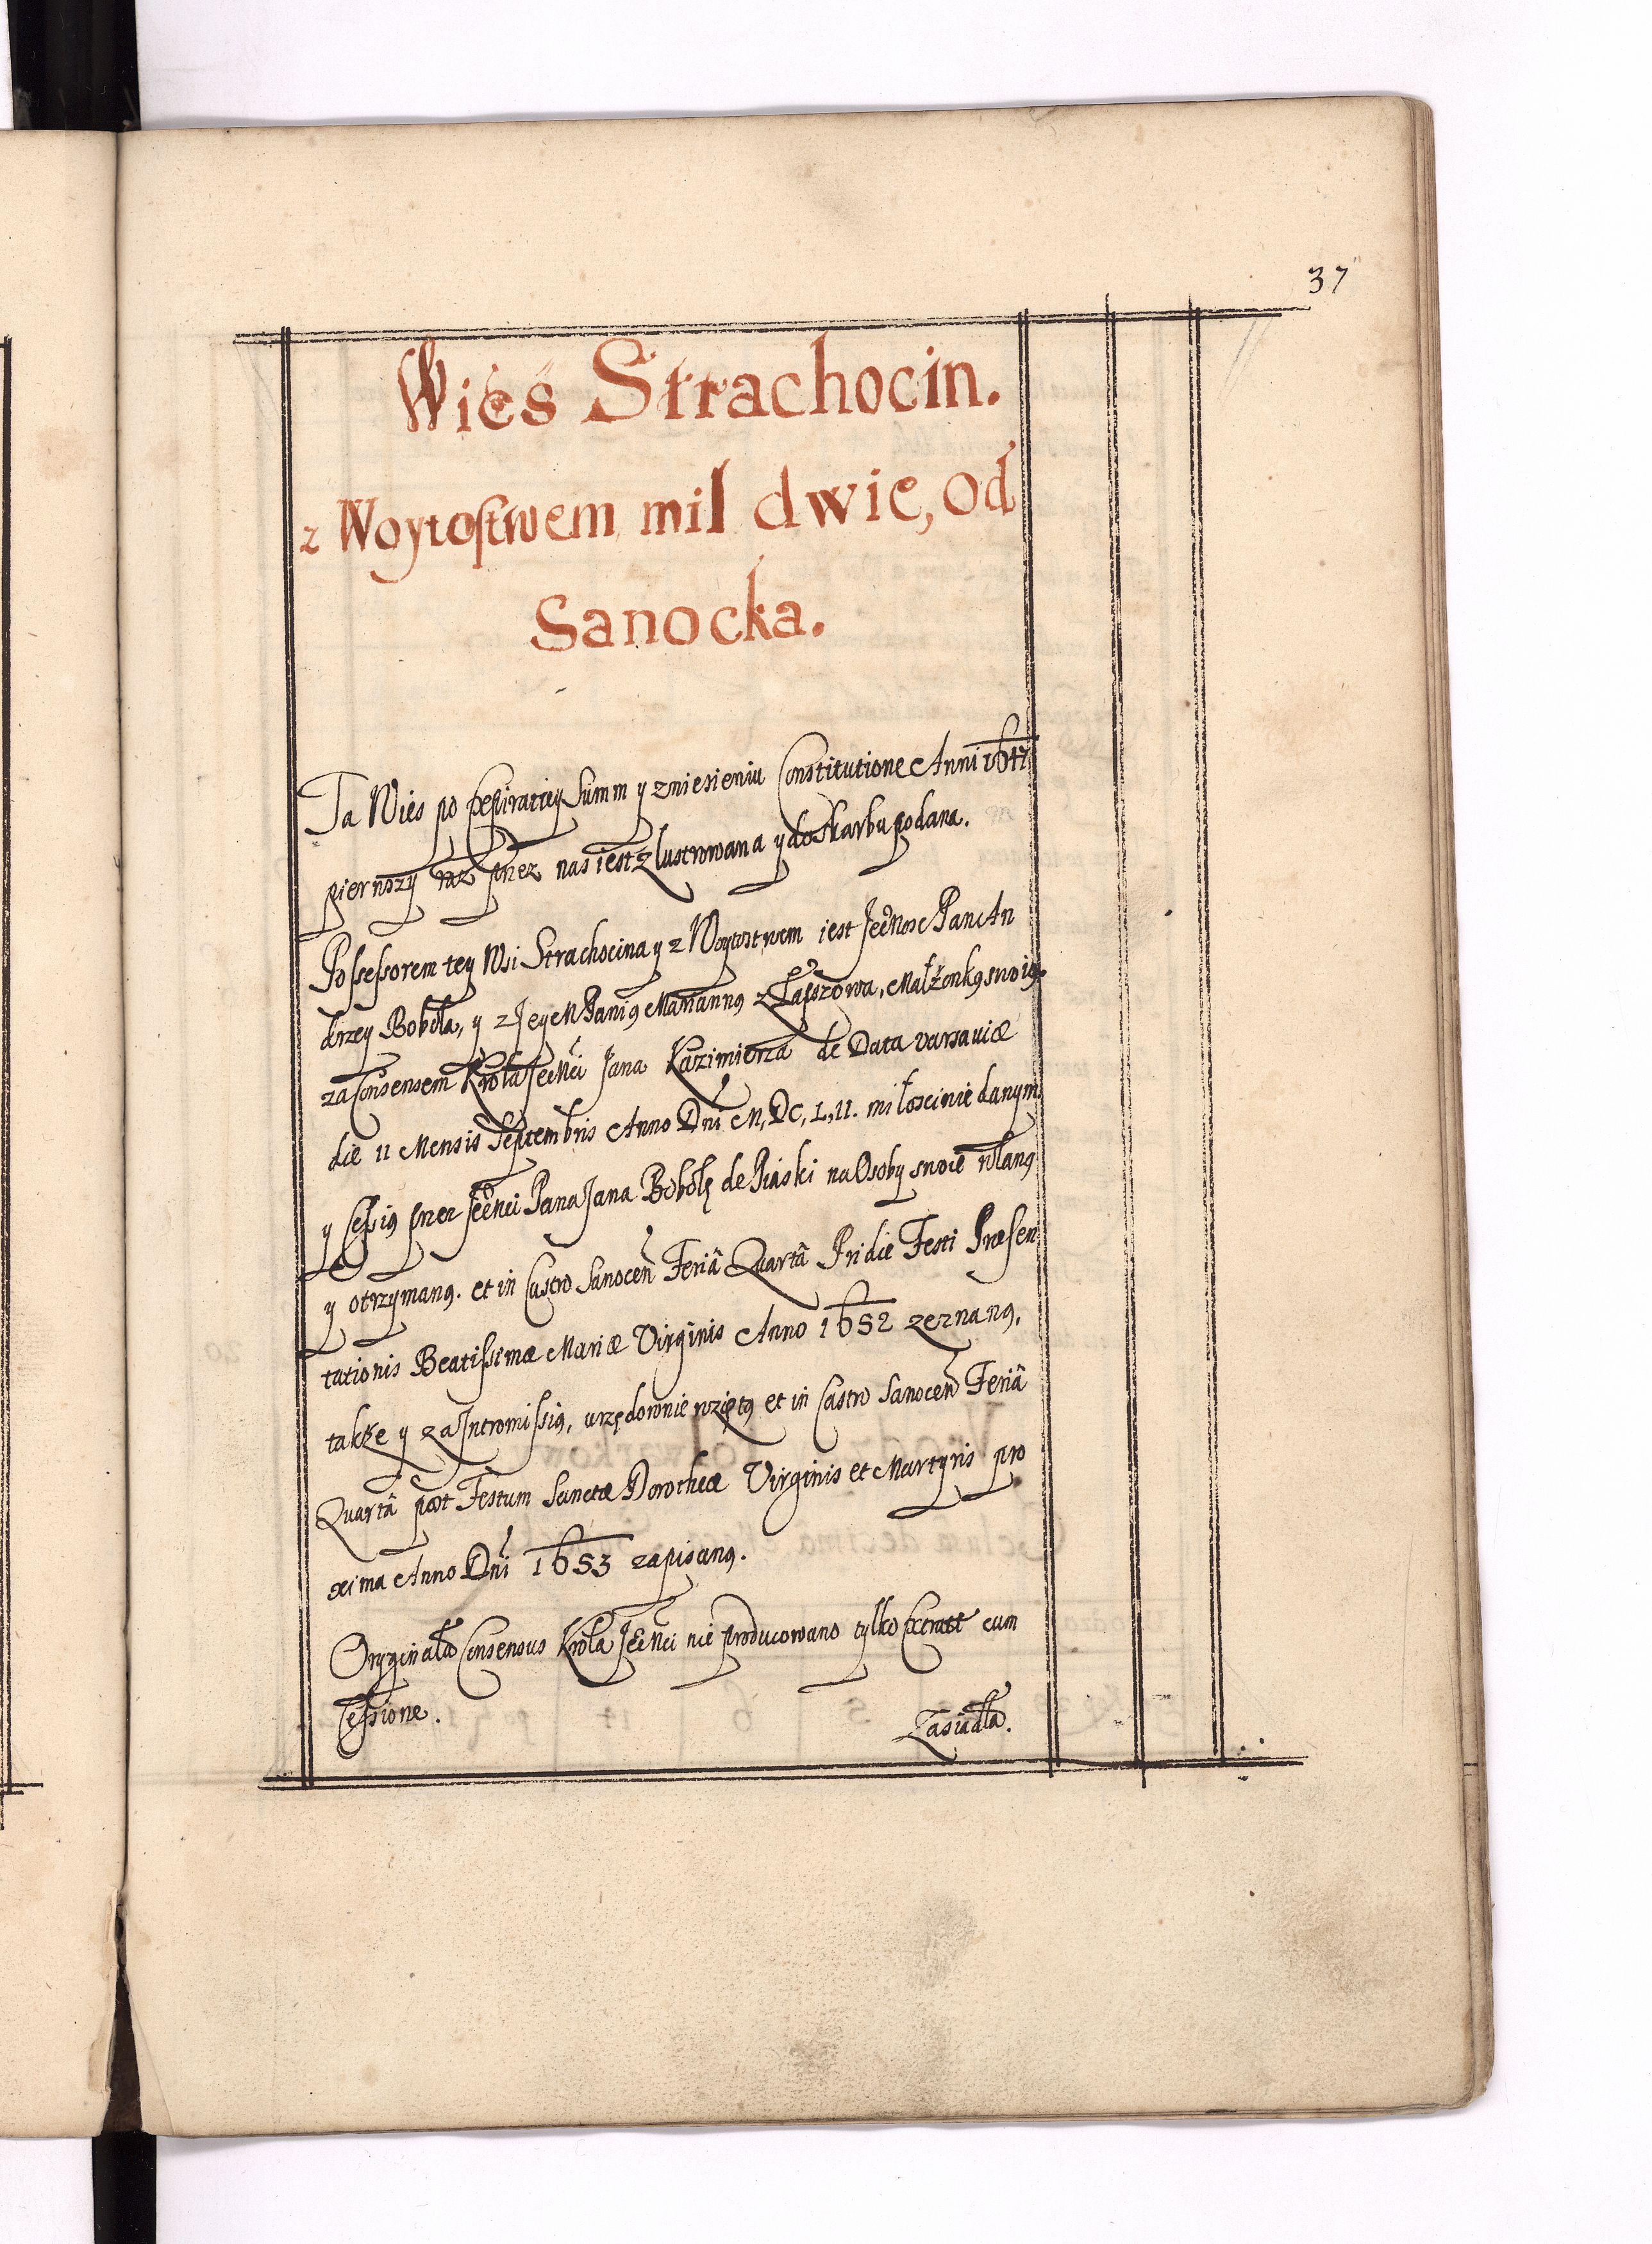 37
Wies Strachocin.
z Woytostwem mil dwie, od
Sanocka.
Ta Wies po Expiratiey Summ y zniesieniu Constitutione Anni 1647
pierwszy raz przez nas iest zlustrowana y do Skarbu podana.
Possessorem tey Wsi Strachocina y z Woytostwem iest Jeo Mosc Pan An
drzey Boboła, y z Jey M Panią Marianną z Łapszowa, Małżonką swoią.
za Consensem Krola Jeo Mci Jana Kazimierza de Data Varsaviæ
die 11 Mensis Septembris Anno Dni M, DC, L, 11. miłoscinie danym
y Cessią przez Jeo Mci Pana Jana Bobolę de Piaski na Osoby swoie wlaną
y otrzymaną. et in Castro Sanocen Feriâ Quartâ Pridie Festi Præsen
tationis Beatissimæ Mariæ Virginis Anno 1652 zeznaną,
takze y za Intromissią, urzędownie wziętą et in Castro Sanocen Feriâ
Quartâ post Festum Sanctæ Dorotheæ Virginis et Martyris pro
xima Anno Dni 1653 zapisaną.
Oryginału Consensus Krola Jeo Mci nie producowano tylko Extract cum
Cessione.
Zasiadła.